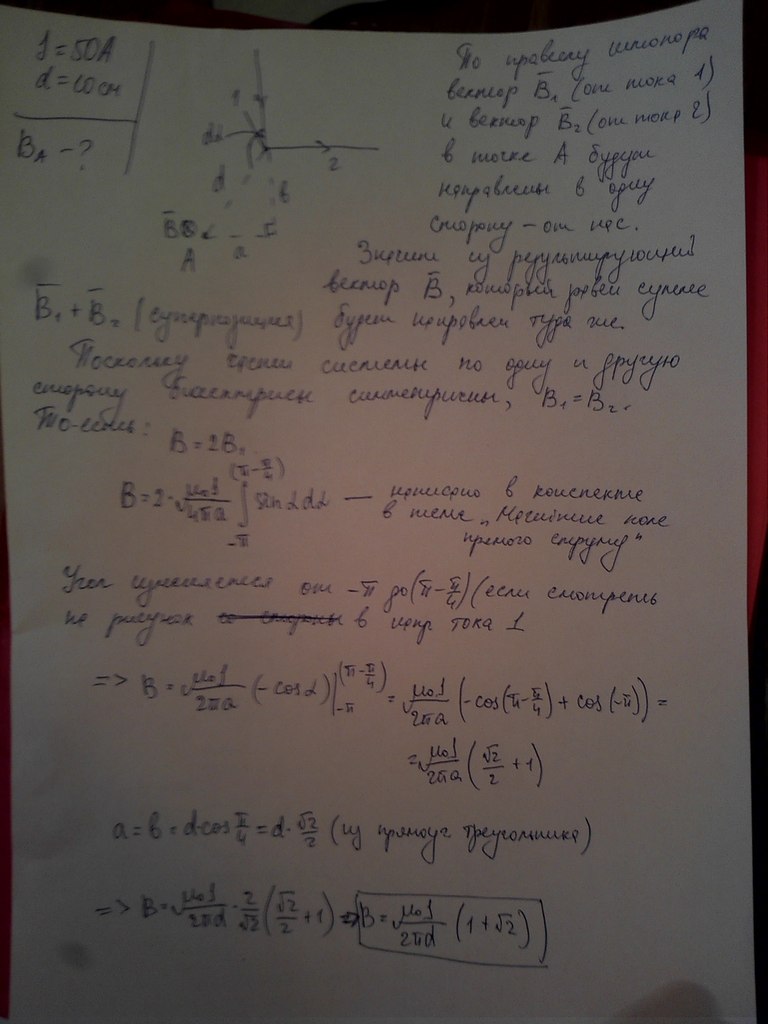 I = 50A
d = 10 см
B_A - ?
1
dα
2
d
b
B⊗
a
A
По правилу штопора
вектор B̄₁ (от тока 1)
и вектор B̄₂ (от тока 2)
в точке А будут
направлены в одну
сторону – от нас.
Значит и результирующий
вектор B̄, который равен сумме
B̄₁ + B̄₂ (суперпозиция) будет направлен туда же.
Поскольку части системы по одну и другую
сторону биссектрисы симметричны, B₁ = B₂.
То-есть:
B = 2B₁
B = 2·μ₀I/4πa ∫_{-π}^{(π-π/4)} sin α dα — написано в конспекте
в теме „Магнитное поле
прямого струму"
Угол изменяется от -π до (π-π/4) (если смотреть
на рисунок в напр тока 1
=> B = μ₀I/2πa (-cos α)|_{-π}^{(π-π/4)} = μ₀I/2πa (-cos(π-π/4) + cos(-π)) =
= μ₀I/2πa (√2/2 + 1)
a = b = d·cos π/4 = d·√2/2 (из прямоуг треугольника)
=> B = μ₀I/2πd · 2/√2 (√2/2 + 1) => B = μ₀I/2πd (1 + √2)